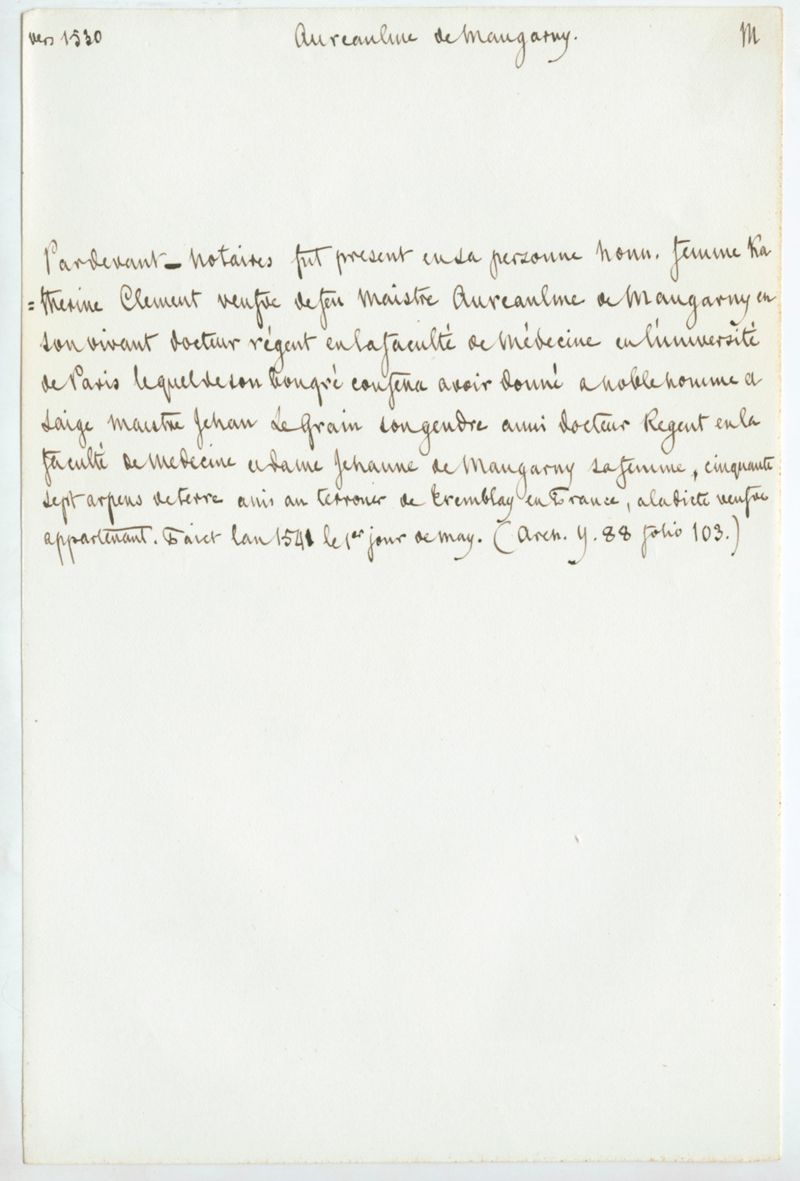 vers 1530 Aureaulme de Maugarny. M
Pardevant _ Notaires fut present en sa personne honn. femme Ka
=therine Clement veufve de feu Maistre Aureaulme de Maugarny en
son vivant docteur régent en la faculté de Médecine en l'université
de Paris lequel de son bongré confessa avoir donné a noble homme et
saige maistre Jehan Le Grain son gendre aussi docteur Regent en la
faculté de Medecine et dame Jehanne de Maugarny sa femme, cinquante
sept arpens de terre assis au terrouer de Tremblay en France, a la dicte veufve
appartenant. Faict lan 1541 le 1er jour de may. (Arch. Y. 88 folio 103.)